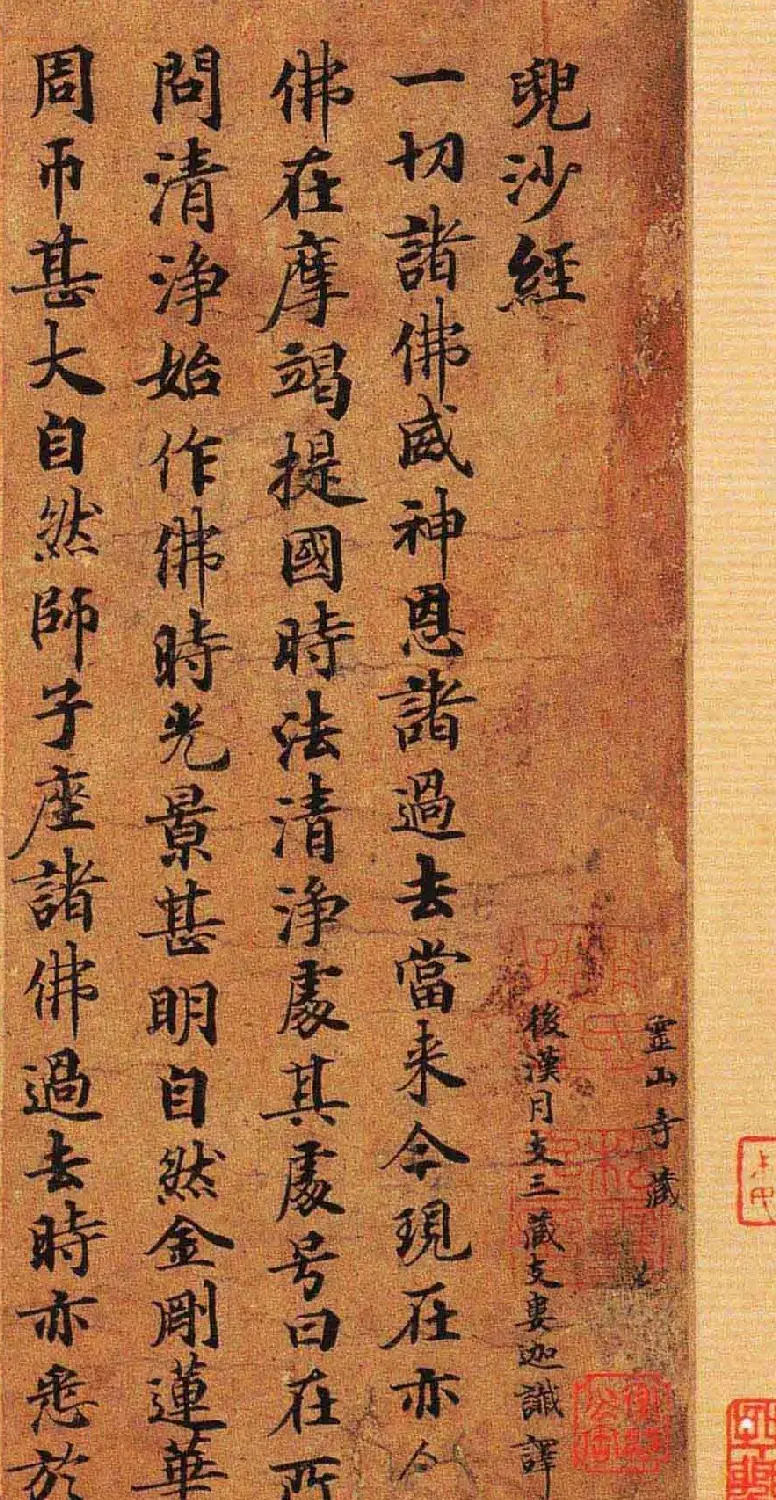 靈山寺藏
兜沙經
後漢月支三藏支婁迦讖譯
一切諸佛威神恩諸過去當来今現在亦
佛在摩竭提國時法清淨處其處号曰在所
問清淨始作佛時光景甚明自然金剛蓮華
周帀甚大自然師子座諸佛過去時亦悉於